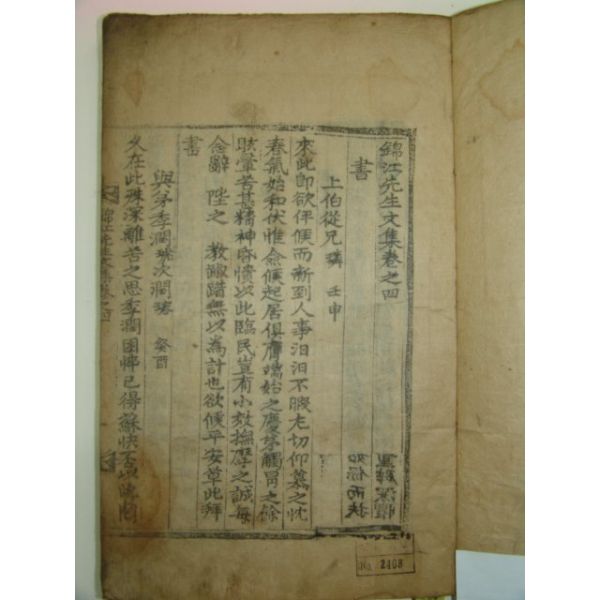 錦江先生文集卷之四
書
上伯從兄璘 壬申
來此即欲伻候而新到人事汨汨不暇尤切仰慕之忱
春氣始和伏惟僉候起居俱膺端始之慶弟觸冒之餘
眩暈苦甚精神昏憒以此臨民豈有小效撫摩之誠每
念辭陛之教踧踖無以為計也欲候平安草此拜
書
與弟季潤 次潤 癸酉
久在此殊深離苦之思季潤困悴已得蘇快否
錦江先生文集卷之四
2408